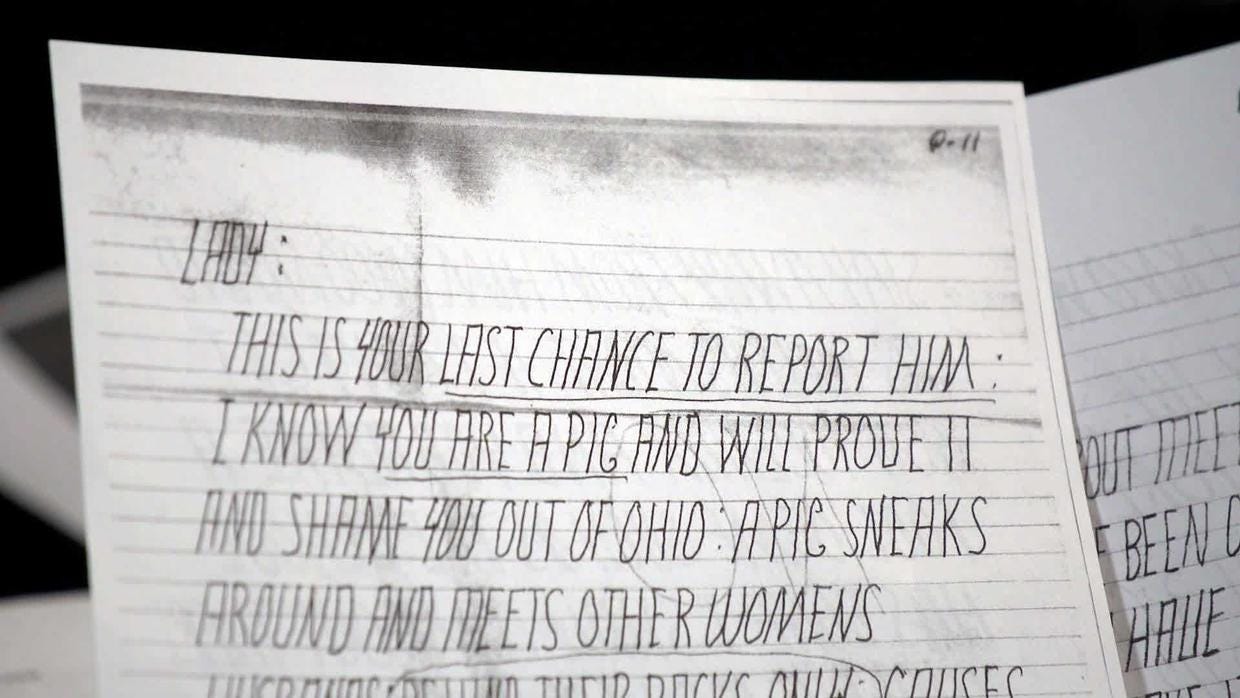 Q-11
LADY:
THIS IS YOUR LAST CHANCE TO REPORT HIM:
I KNOW YOU ARE A PIG AND WILL PROVE IT
AND SHAME YOU OUT OF OHIO: A PIG SNEAKS
AROUND AND MEETS OTHER WOMENS
HUSBANDS: BEHIND THEIR BACKS ONLY: CAUSES
OUT MEET
BEEN
HAVE